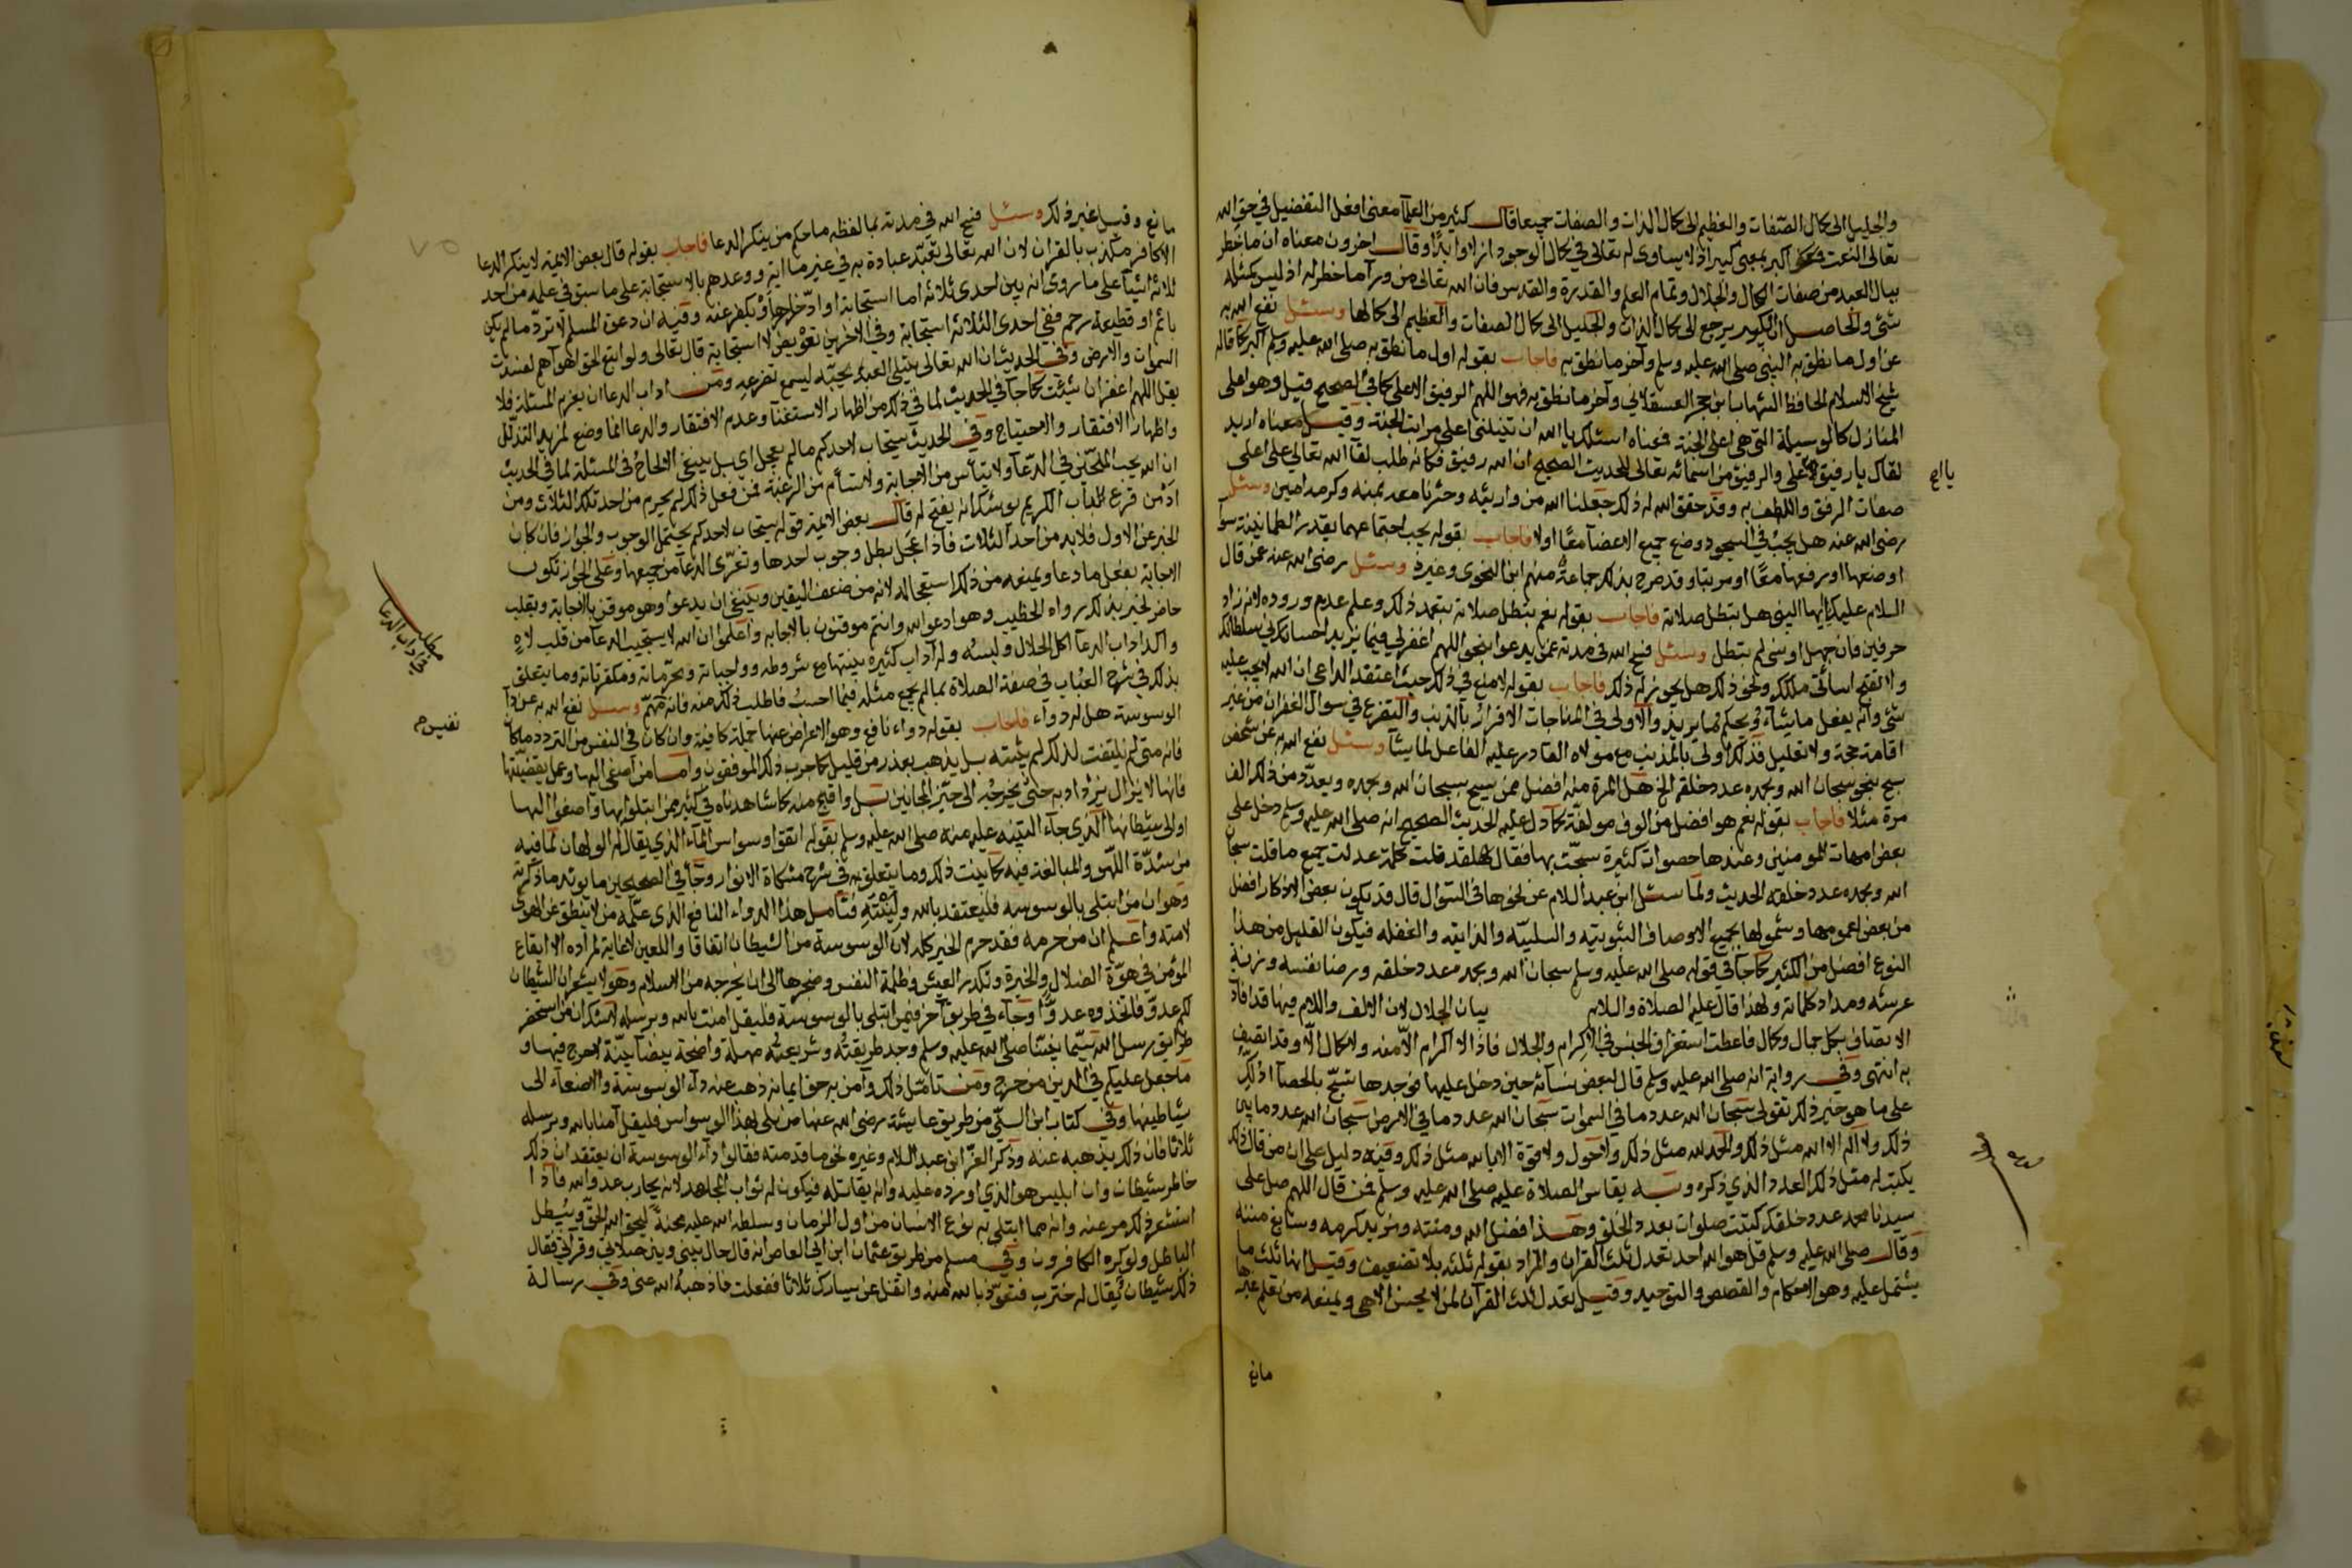 والجليل الى كمال الصفات والعظيم الى كمال الذات والصفات جميعا قال كثير من العلمآ معنى افعل التفضيل في حق الله
تعالى النعت فمعنى اكبر بمعنى كبير اذ لا يساوى له تعالى في كمال الوجود ازلا وابدا وقال اخرون معناه ان ما خطر
ببال العبد من صفات الكمال والجلال وتمام العلم والقدرة والقدس فان الله تعالى من ورآ ما خطر له اذ ليس كمثله
شئ والحاصل ان الكبير يرجع الى كمال الذات والجليل الى كمال الصفات والعظيم الى كمالها وسئل نفع الله به
عن اول ما نطق به النبى صلى الله عليه وسلم وآخر ما نطق به فاجاب بقوله اول ما نطق به صلى الله عليه وسلم الله اكبر كما قاله
شيخ الاسلام الحافظ الشهاب ابن حجر العسقلاني وآخر ما نطق به فهو اللهم الرفيق الاعلى كما في الصحيح قيل وهو اعلى
المنازل كالوسيلة التى هي اعلى الجنة فمعناه اسئلك يا الله ان تنيلنى اعلى مراتب الجنة وقيل معناه اريد
لقاك يا رفيق الاعلى والرفيق من اسمائه تعالى للحديث الصحيح ان الله رفيق فكانه طلب لقآ الله تعالى على اعلى
صفات الرفق واللطف به وقد حقق الله له ذلك جعلنا الله من وارثيه وحشرنا معه بمنه وكرمه امين وسئل
رضى الله عنه هل يجب في السجود وضع جميع الاعضآ معًا اولا فاجاب بقوله يجب اجتماعهما بقدر الطمانينة سوآ
اوضعها او رفعها معًا او مرتبا وقد صرح بذلك جماعة منهم ابن النحوى وغيره وسئل رضى الله عنه عن قال
السلام عليك ايها النبى هل تبطل صلاته فاجاب بقوله نعم تبطل صلاته بتعمد ذلك وعلم عدم وروده لانه زاد
حرفين فان جهل او نسى لم تبطل وسئل فسح الله في مدته عمن يدعوا بنحو اللهم اغفر لي فيما نريد احسانك
ولا تقبح اسائتى ملكك ونحو ذلك هل يجوز له ذلك فاجاب بقوله لا منع في ذلك حيث اعتقد الداعى ان الله لا يجب عليه
شئ وانه يفعل ما يشآء ويحكم ما يريد والاولى في المناجات الاقرار بالذنب والتضرع في سوال الغفران من غير
اقامة حجة ولا تعليل فذلك اولى بالمذنب مع مولاه القادر عليه الفاعل لما يشآ وسئل نفع الله به عن شخص
سبح بنحو سبحان الله وبحمده عدد خلقه الخ هل المرة منه افضل ممن سبح سبحان الله وبحمده ويعدّد من ذلك الف
مرة مثلا فاجاب بقوله نعم هو افضل من الوف مولفة كما دل عليه الحديث الصحيح انه صلى الله عليه وسلم دخل على
بعض امهات المومنين وعندها حصوات كثيرة سبحت بها فقال لها لقد قلت كلمة عدلت جميع ما قلت سبحان
الله وبحمده عدد خلقه الحديث ولما سئل ابن عبد السلام عن نحو هذا السوال قال قد يكون بعض الاذكار افضل
من بعض لعمومها وشمولها لجميع الاوصاف الثبوتيه والسلبيه والذاتيه والفعليه فيكون القليل من هذا
النوع افضل من الكثير كما جآ في قوله صلى الله عليه وسلم سبحان الله وبحمده عدد خلقه ورضا نفسه وزنة
عرشه ومداد كلماته ولهذا قال عليه الصلاة والسلام بيان الجلال لان الالف واللام فيها قد افاد
الاتصاف بكل جمال وكمال فاعطت استغراق الجنس في الاكرام والجلال فاذا لا اكرام الّا منه ولا كمال الّا وقد اتصف
به انتهى وفي رواية انه صلى الله عليه وسلم قال لبعض نسآئه حين دخل عليها فوجدها تسبّح بالحصآ ادلك
على ما هو خير ذلك تقولى سبحان الله عدد ما في السموات سبحان الله عدد ما في الارض سبحان الله عدد ما بين
ذلك ولا اله الا الله مثل ذلك والحمد لله مثل ذلك ولا حول ولا قوة الا بالله مثل ذلك وفيه دليل على ان من قال ذلك
يكتب له مثل ذلك العدد الذي ذكره وبه يقاس الصلاة عليه صلى الله عليه وسلم فمن قال اللهم صل على
سيدنا محمد عدد خلقك كتبت صلوات بعدد الخلق وهذا فضل الله ومنته ومزيد كرمه وسابغ مننه
وقال صلى الله عليه وسلم قل هو الله احد تعدل ثلث القران والمراد بقوله ثلثه بلا تضعيف وقيل انها ثلث ما
يشتمل عليه وهو الاحكام والقصص والتوحيد وقيل تعدل ثلث القرآن لمن لا يحسن الا هي ويمنعه من تعلم غيرها
مانع
مانع وقيل غير ذلك وسئل فسح الله في مدته بما لفظه ما حكم من ينكر الدعا فاجاب بقوله قال بعض الائمة لا ينكر الدعا
الا كافر مكذب بالقران لان الله تعالى تعبّد عباده به في غير ما اية ووعدهم بالاستجابة على ما سبق في علمه من احد
ثلاثة اشيآ على ما روى انه بين احدى ثلاثة اما استجابة او ادّخارها او يكفر عنه وفيه ان دعوة المسلم لا تردّ ما لم يكن
باثم او قطيعة رحم ففي احدى الثلاثة استجابة وفي الاخرين تعويض لا استجابة قال تعالى ولو اتبع الحق اهوآهم لفسدت
السموات والارض وفي الحديث ان الله تعالى يبتلى العبد يحبّه ليسمع تضرعه ومن اداب الدعا ان يعزم المسئلة فلا
يقل اللهم اغفر ان شيئت كما جآ في الحديث لما في ذلك من اظهار الاستغنآ وعدم الافتقار والدعا انما وضع لمزيد التذلّل
واظهار الافتقار والاحتياج وفي الحديث يستجاب لاحدكم ما لم يعجل اي بل ينبغى الالحاح في المسئلة لما في الحديث
ان الله يحب الملحّين في الدّعآ ولا ييأس من الاجابة ولا يسأم من الرغبة فمن فعل ذلك لم يحرم من احد تلك الثلاث ومن
ادمن قرع الباب الكريم يوشك ان يفتح له قال بعض الائمة قوله يستجاب لاحدكم يحتمل الوجوب والجواز فان كان
الخبر عن الاول فلابد من احد الثلاث فاذا عجّل بطل وجوب احدها وتعرّى الدعآ من جميعها وعلى الجواز تكون
الاجابة بفعل ما دعا ويمنعه من ذلك استعجاله لانه من ضعف اليقين وينبغى ان يدعوا وهو موقن بالاجابة وبقلب
حاضر لخبر بذلك رواه الخطيب وهو ادعوا الله وانتم موقنون بالاجابه واعلموا ان الله لا يستجيب الدعآ من قلب لاهٍ
واكد اداب الدعآ اكل الحلال ولبسُه وله آداب كثيرة بينتها مع شروطه وواجباته ومحرّماته ومكفراته وما يتعلق
بذلك في شرح العباب في صفة الصلاة بما لم يجمع مثله فيما احسبُ فاطلب ذلك منه فانه مهمّ وسئل نفع الله به عن دآ
الوسوسة هل له دوآء فاجاب بقوله دوآء نافع وهو الاعراض عنها جملة كافية وان كان في النفس من التردد ما كان
فانه متى لم يلتفت لذلك لم يثبت بل يذهب بعد زمن قليل كما جرب ذلك الموفقون واما من اصغى اليها وعمل بقضيتها
فانها لا تزال تزداد به حتى تخرجه الى حيّز المجانين بل واقبح منه كما شاهدناه في كثير ممن ابتلوا بها واصغوا اليها
والى شيطانها الذي جآء التنبيه عليه منه صلى الله عليه وسلم بقوله اتقوا وسواس المآء الذي يقال له الولهان لما فيه
من شدّة اللّهو والمبالغة فيه كما بينت ذلك وما يتعلق به في شرح مشكاة الانوار وجآ في الصحيحين ما يويد ما ذكرته
وهو ان من ابتلى بالوسوسة فليعتقد بالله ولينته فتأمل هذا الدوآء النافع الذى علّمه من لا ينطق عن الهوى
لامته واعلم ان من حرمه فقد حرم الخير كله لان الوسوسة من الشيطان اتفاقا واللعين لا غاية لمراده الا ايقاع
المؤمن في هوّة الضلال والحيرة ونكد العيش وظلمة النفس وضجرها الى ان يخرجه من الاسلام وهو لا يشعر ان الشيطان
لكم عدوّ فاتخذوه عدوًّا وجآء في طريق آخر فيمن ابتلى بالوسوسة فليقل امنت بالله وبرسله ولا شك ان من استحضر
طرائق رسل الله سيّما نبينا صلى الله عليه وسلم وجد طريقته وشريعته سهلة واضحة بيضآ بيّنة لا حرج فيها و
ما جعل عليكم في الدين من حرج ومن تأمّل ذلك وآمن به حق ايمانه ذهب عنه دآء الوسوسة والاصغآء الى
شياطينها وفي كتاب ابن السنّي من طريق عايشة رضى الله عنها من بلى بهذا الوسواس فليقل آمنا بالله وبرسله
ثلاثا فان ذلك يذهبه عنه وذكر العزّ ابن عبد السلام وغيره نحو ما قدمته فقالوا دآء الوسوسة ان يعتقد ان ذلك
خاطر شيطان وان ابليس هو الذي اورده عليه وانه يقاتله فيكون له ثواب المجاهد لانه يحارب عدو الله فاذا
استشعر ذلك مر عنه وانه مما ابتلى به نوع الانسان من اول الزمان وسلطه الله عليه محنةً ليحق الله الحقّ ويُبطل
الباطل ولو كره الكافرون وفي مسلم من طريق عثمان ابن ابي العاص انه قال حال بينى وبين صلاتي وقرآتي فقال
ذلك شيطان يُقال له خنزب فتعوّذ بالله منه واتفل عن يسارك ثلاثا ففعلت فاذهبهُ الله عنى وفي رسالة
مطلب
في اداب الدعا
نفيس م